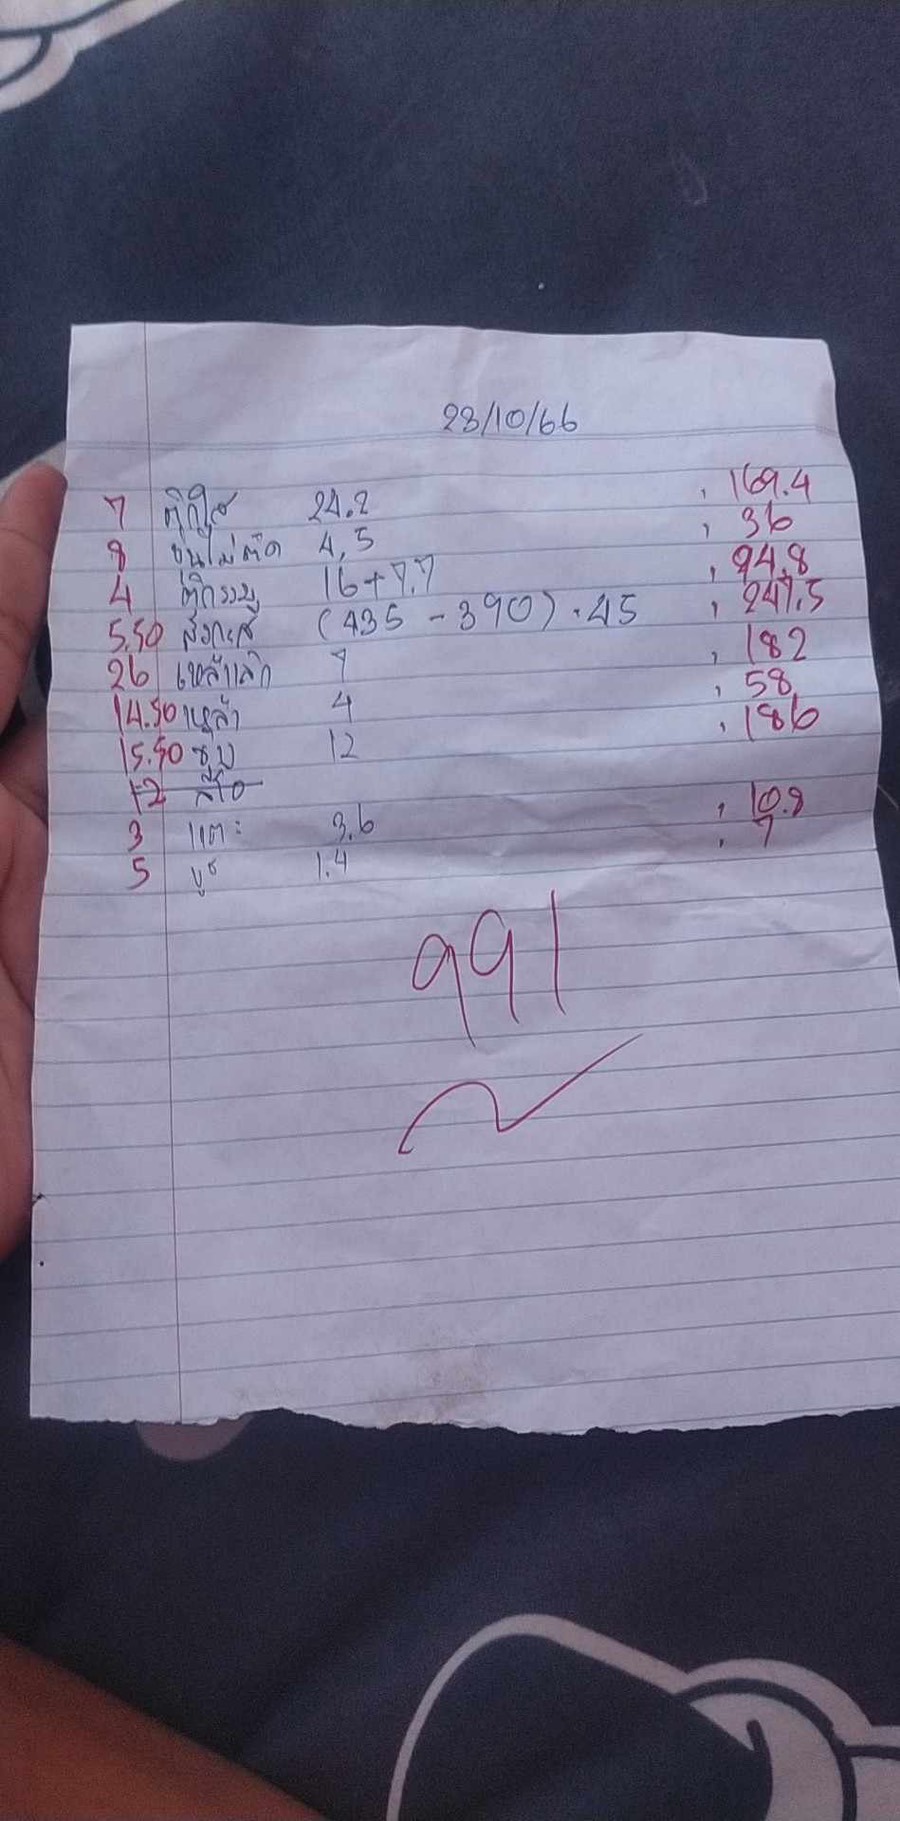 23/10/66
7 ตุ๊กใส 24.2 , 169.4
8 ขุ่นไม่ตัด 4,5 , 36
4 ตุ๊กรวม 16+7.7 , 94.8
5.50 สังกะสี (435 - 390) . 45 , 247.5
26 เหล้าเล็ก 7 , 182
14.50 เหล้า 4 , 58
15.50 ชุบ 12 , 186
12 ลีโอ
3 แตะ 3.6 , 10.8
5 บูธ 1.4 , 7
991